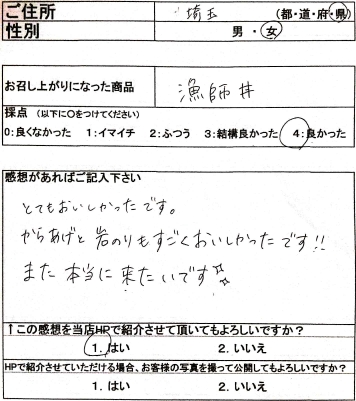 ご住所 埼玉 (都・道・府・県)
性別 男・女
お召し上がりになった商品 漁師丼
採点 (以下に○をつけてください)
0:良くなかった 1:イマイチ 2:ふつう 3:結構良かった 4:良かった
感想があればご記入下さい
とてもおいしかったです。
からあげと岩のりもすごくおいしかったです!!
また本当に来たいです
↑この感想を当店HPで紹介させて頂いてもよろしいですか?
1. はい 2. いいえ
HPで紹介させていただける場合、お客様の写真を撮って公開してもよろしいですか?
1. はい 2. いいえ